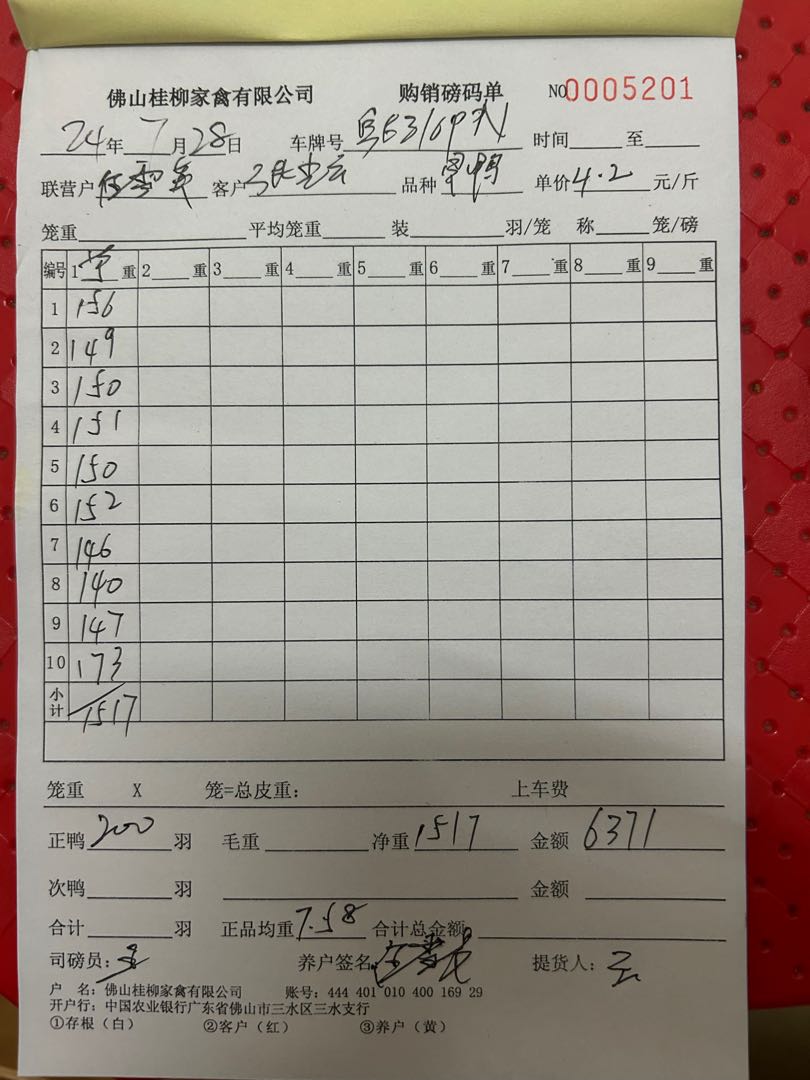 佛山桂柳家禽有限公司 购销磅码单 NO0005201
24年7月28日 车牌号 时间 至
联营户 客户 品种 单价4.2元/斤
笼重 平均笼重 装 羽/笼 称 笼/磅
编号 1 重 2 重 3 重 4 重 5 重 6 重 7 重 8 重 9 重
1 156
2 149
3 150
4 151
5 150
6 152
7 146
8 140
9 147
10 173
小计 1517
笼重 X 笼=总皮重： 上车费
正鸭200羽 毛重 净重1517 金额6371
次鸭 羽 金额
合计 羽 正品均重7.58 合计总金额
司磅员： 养户签名 提货人：
户 名：佛山桂柳家禽有限公司 账号：444 401 010 400 169 29
开户行：中国农业银行广东省佛山市三水区三水支行
①存根（白） ②客户（红） ③养户（黄）